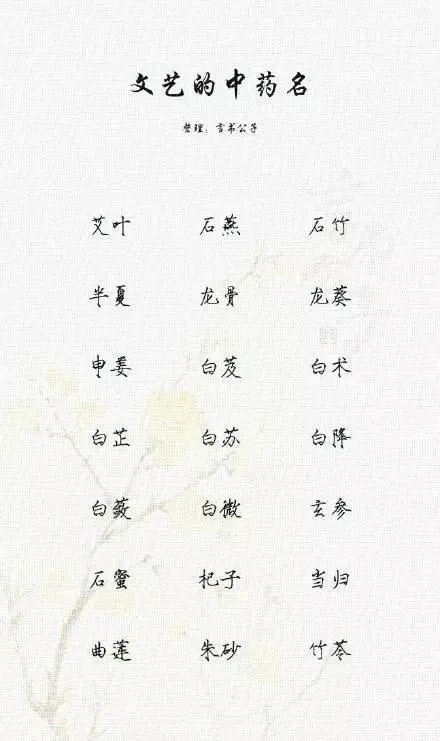 文艺的中药名
整理：言书公子
艾叶 石燕 石竹
半夏 龙骨 龙葵
申姜 白芨 白术
白芷 白苏 白降
白蔹 白微 玄参
石蜜 杞子 当归
曲莲 朱砂 竹苓